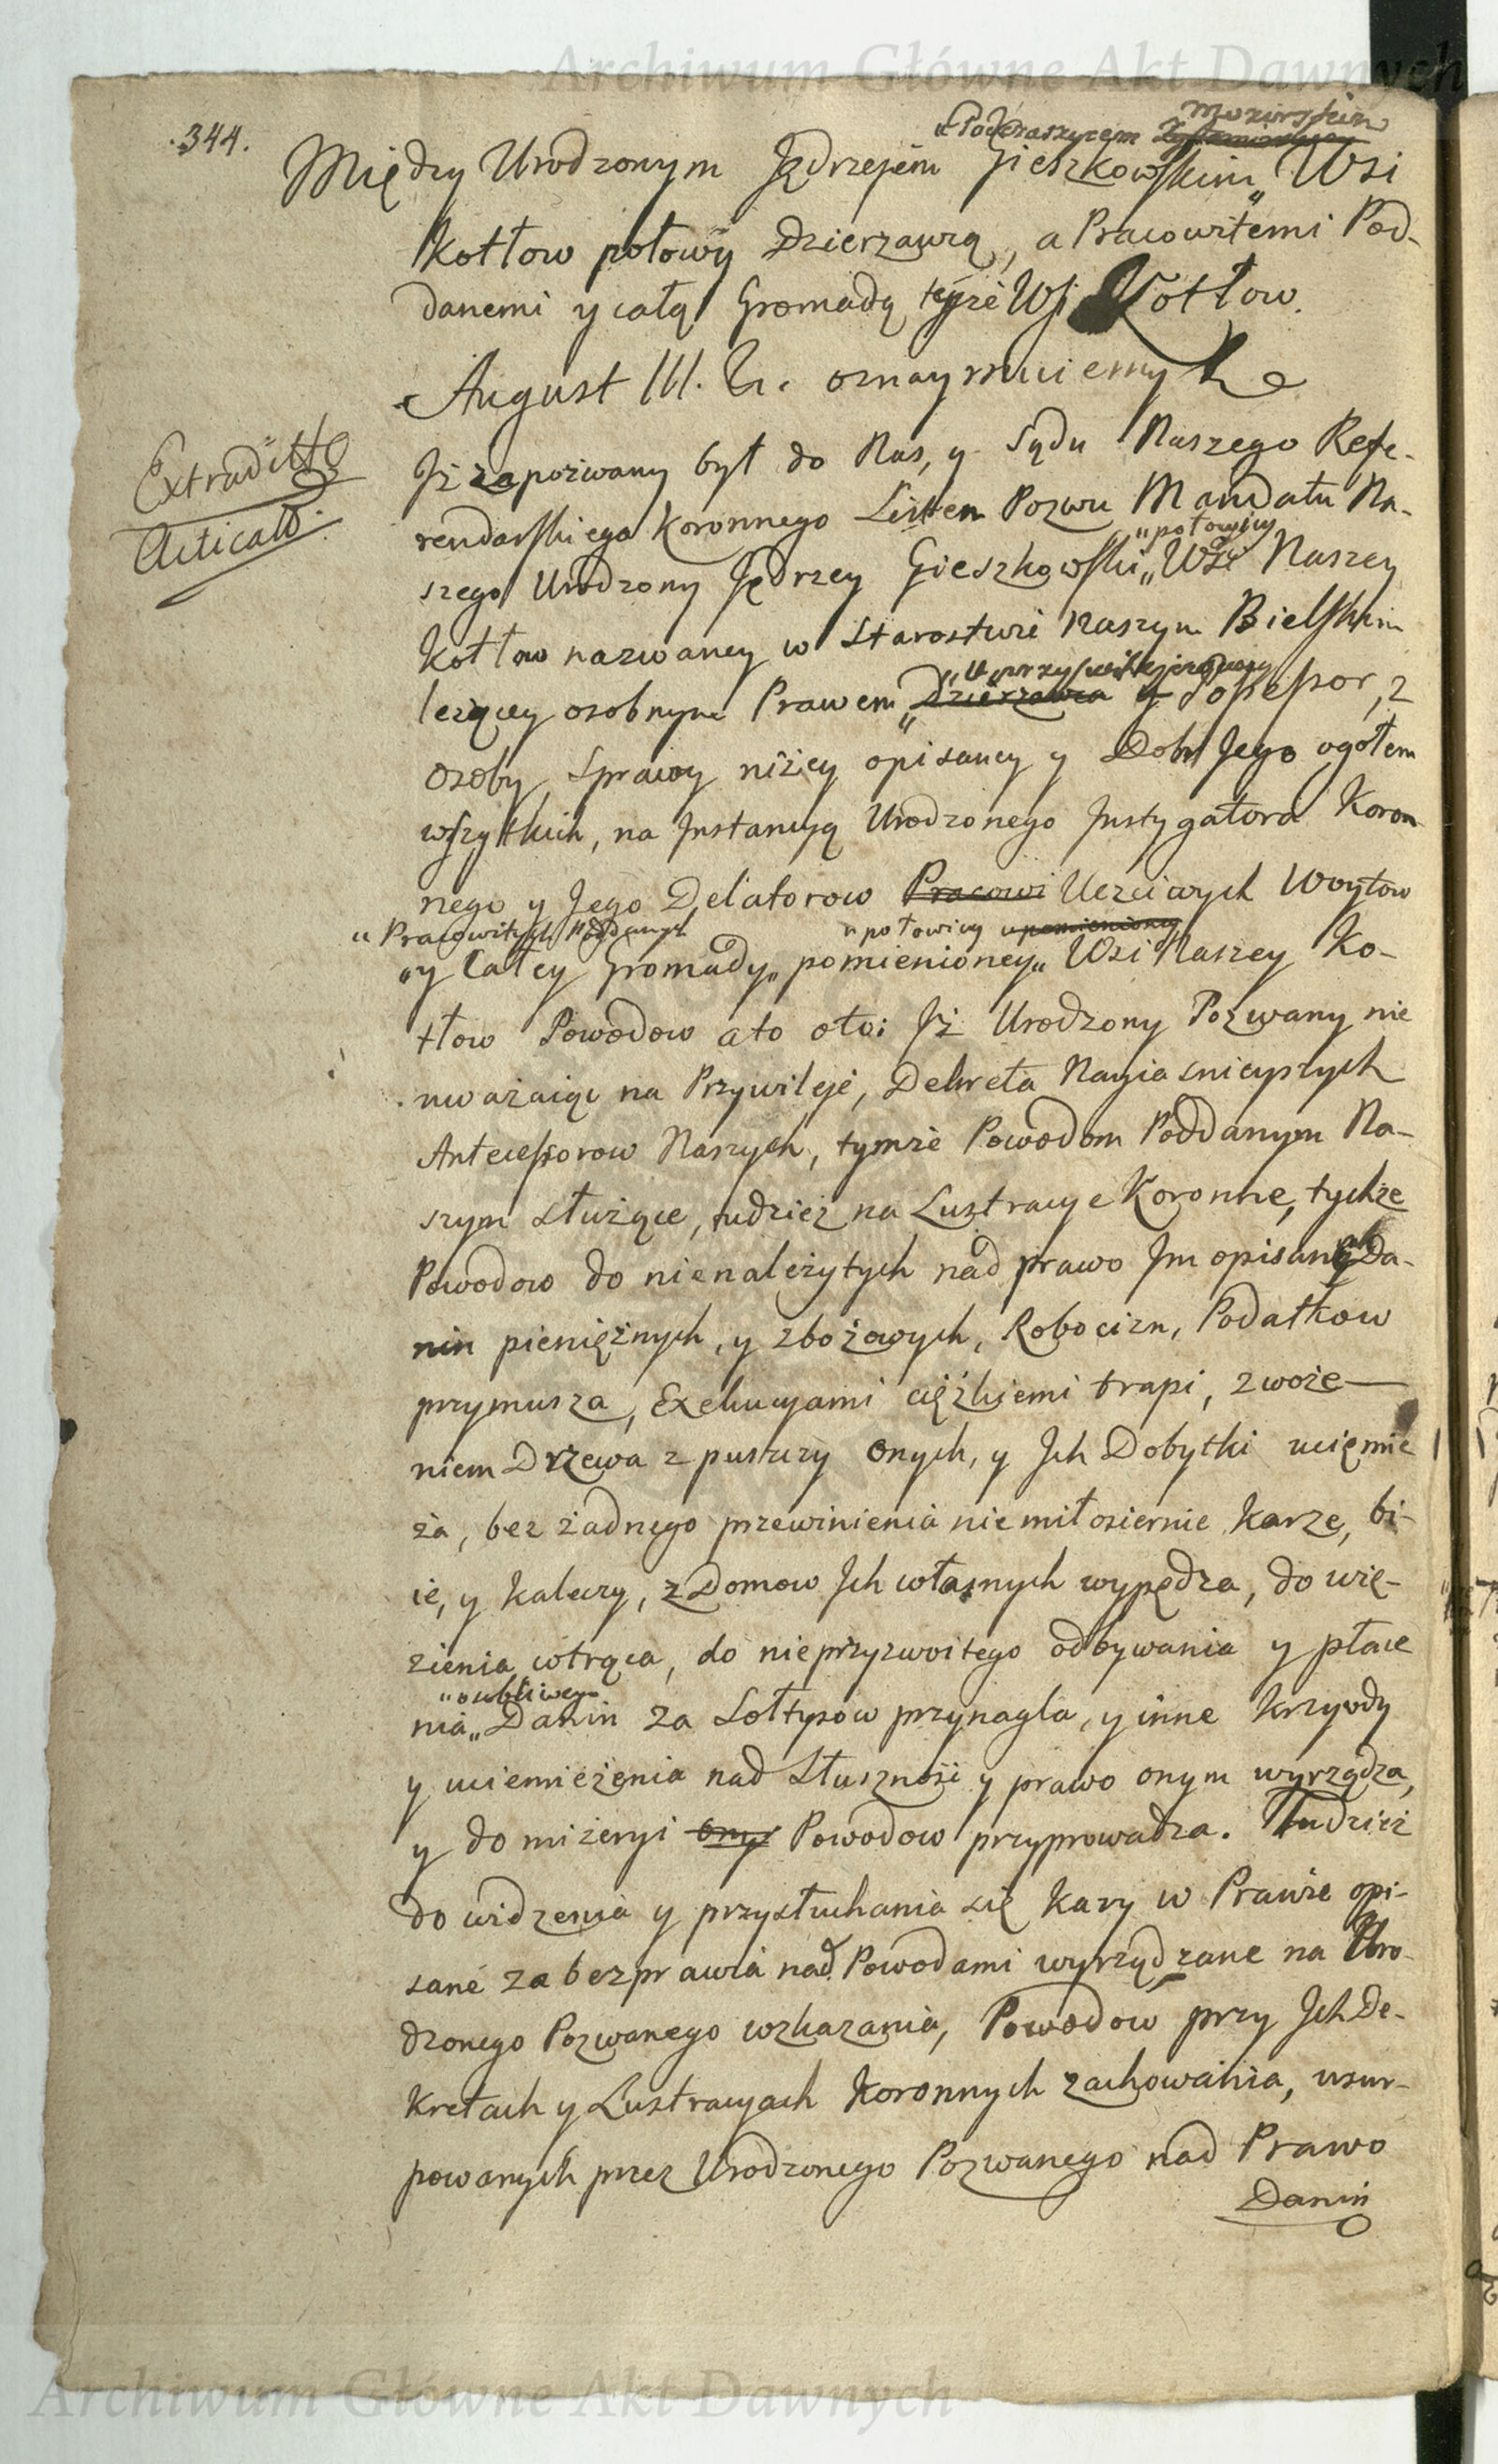 Archiwum Główne Akt Dawnych
.344.
"Podczaszycem Mozirskim
Między Urodzonym Jędrzejem Gieszkowskim" Wsi
Kotłow połowy Dzierzawcą, a Pracowitemi Pod-
danemi y całą Gromadą teyże Wsi Kotłow.
August III. &. oznaymuiemy
Extradittõ
Iż zapozwany był do Nas, y Sądu Naszego Refe-
Acticatõ.
rendarskiego Koronnego Listem Pozwu Mandatu Na-
"połowicy
szego Urodzony Jędrzey Gieszkowski" Wsi Naszey
Kotłow nazwaney w Starostwie Naszym Bielskim
"Uprzywilejowany
leżącey osobnym Prawem" Dzierzawca y Possessor, z
osoby, Sprawy niżey opisaney y Dobr Jego ogołem
wszytkich, na Jnstancyą Urodzonego Jnstygatora Koron
nego y Jego Delatorow Pracowi Uczciwych Woytow
"Pracowitych Poddanych "połowicy upomienioney
"y Całey Gromady" pomienioney" Wsi Naszey Ko-
tłow Powodow ato oto: Iż Urodzony Pozwany nie
uważaiąc na Przywileje, Dekreta Nayiasnieyszych
Antecessorow Naszych, tymże Powodom Poddanym Na-
szym służące, tudzież na Lustracye Koronne, tychże
Powodow do nienależytych nad prawo Jm opisane Da-
nin pieniężnych, y zbożowych, Robocizn, Podatkow
przymusza, Exekucyami ciężkiemi trapi, zwoże-
niem Drzewa z puszczy onych, y Jch Dobytki uciemię
ża, bez żadnego przewinienia niemiłosiernie karze, bi-
ie, y kaleczy, z Domow Jch własnych wypędza, do wię-
zienia wtrąca, do nieprzyzwoitego odbywania y płace
"osobliwey
nia" Danin za Sołtysow przynagla, y inne krzywdy
y uciemiężenia nad Słuszność y prawo onym wyrządza,
y do mizeryi ony Powodow przyprowadza. Tudzież
do widzenia y przysłuchania się kary w Prawie opi-
sane za bezprawia nad Powodami wyrządzane na Uro-
dzonego Pozwanego wskazania, Powodow przy Jch De-
kretach y Lustracyach Koronnych zachowania, usur-
powanych przez Urodzonego Pozwanego nad Prawo
Danin
Archiwum Główne Akt Dawnych